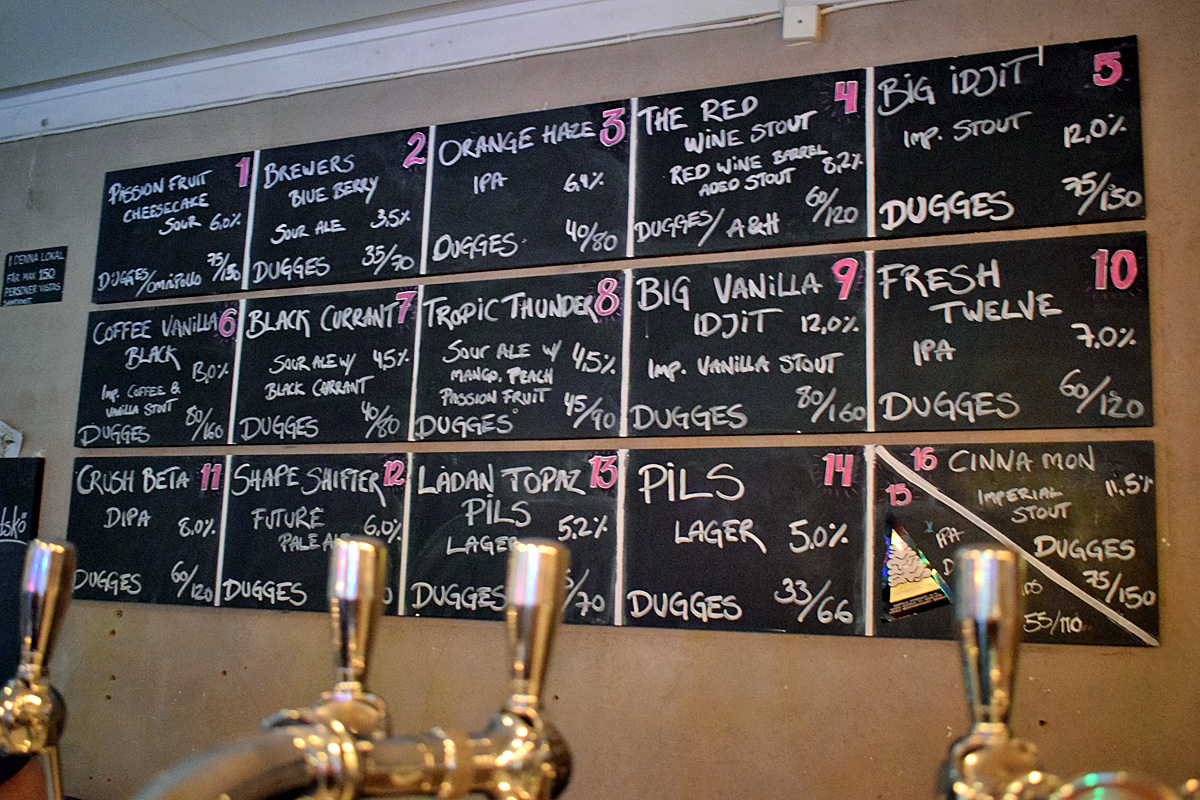 PASSION FRUIT 1
CHEESECAKE
SOUR 6.0%
75/150
DUGGES/OMNIPOLLO
BREWERS 2
BLUE BERRY
SOUR ALE 3,5%
DUGGES 35/70
ORANGE HAZE 3
IPA
40/80
DUGGES
THE RED 4
WINE STOUT
RED WINE BARREL
AGED STOUT 8,2%
60/120
DUGGES/A&H
BIG IDJIT 5
IMP. STOUT 12,0%
DUGGES 75/150
I DENNA LOKAL
FÅR MAX 150
PERSONER VISTAS
SAMTIDIGT
COFFEE VANILLA 6
BLACK
IMP. COFFEE &
VANILLA STOUT
DUGGES 80/160
BLACK CURRANT 7
SOUR ALE W/ 4,5%
BLACK CURRANT
DUGGES 40/80
TROPIC THUNDER 8
SOUR ALE W/ 4,5%
MANGO, PEACH
PASSION FRUIT
DUGGES 45/90
BIG VANILLA 9
IDJIT 12,0%
IMP. VANILLA STOUT
DUGGES 80/160
FRESH 10
TWELVE
IPA 7.0%
DUGGES 60/120
CRUSH BETA 11
DIPA 8.0%
DUGGES 60/120
SHAPE SHIFTER 12
FUTURE 6.0%
PALE
DUGGES
LADAN TOPAZ 13
PILS 5.2%
LAGER
DUGGES /70
PILS 14
LAGER 5.0%
DUGGES 33/66
16 CINNAMON
IMPERIAL 11,5%
STOUT
DUGGES
75/150
15
IPA
55/110